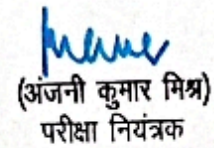 (अंजनी कुमार मिश्र)
परीक्षा नियंत्रक